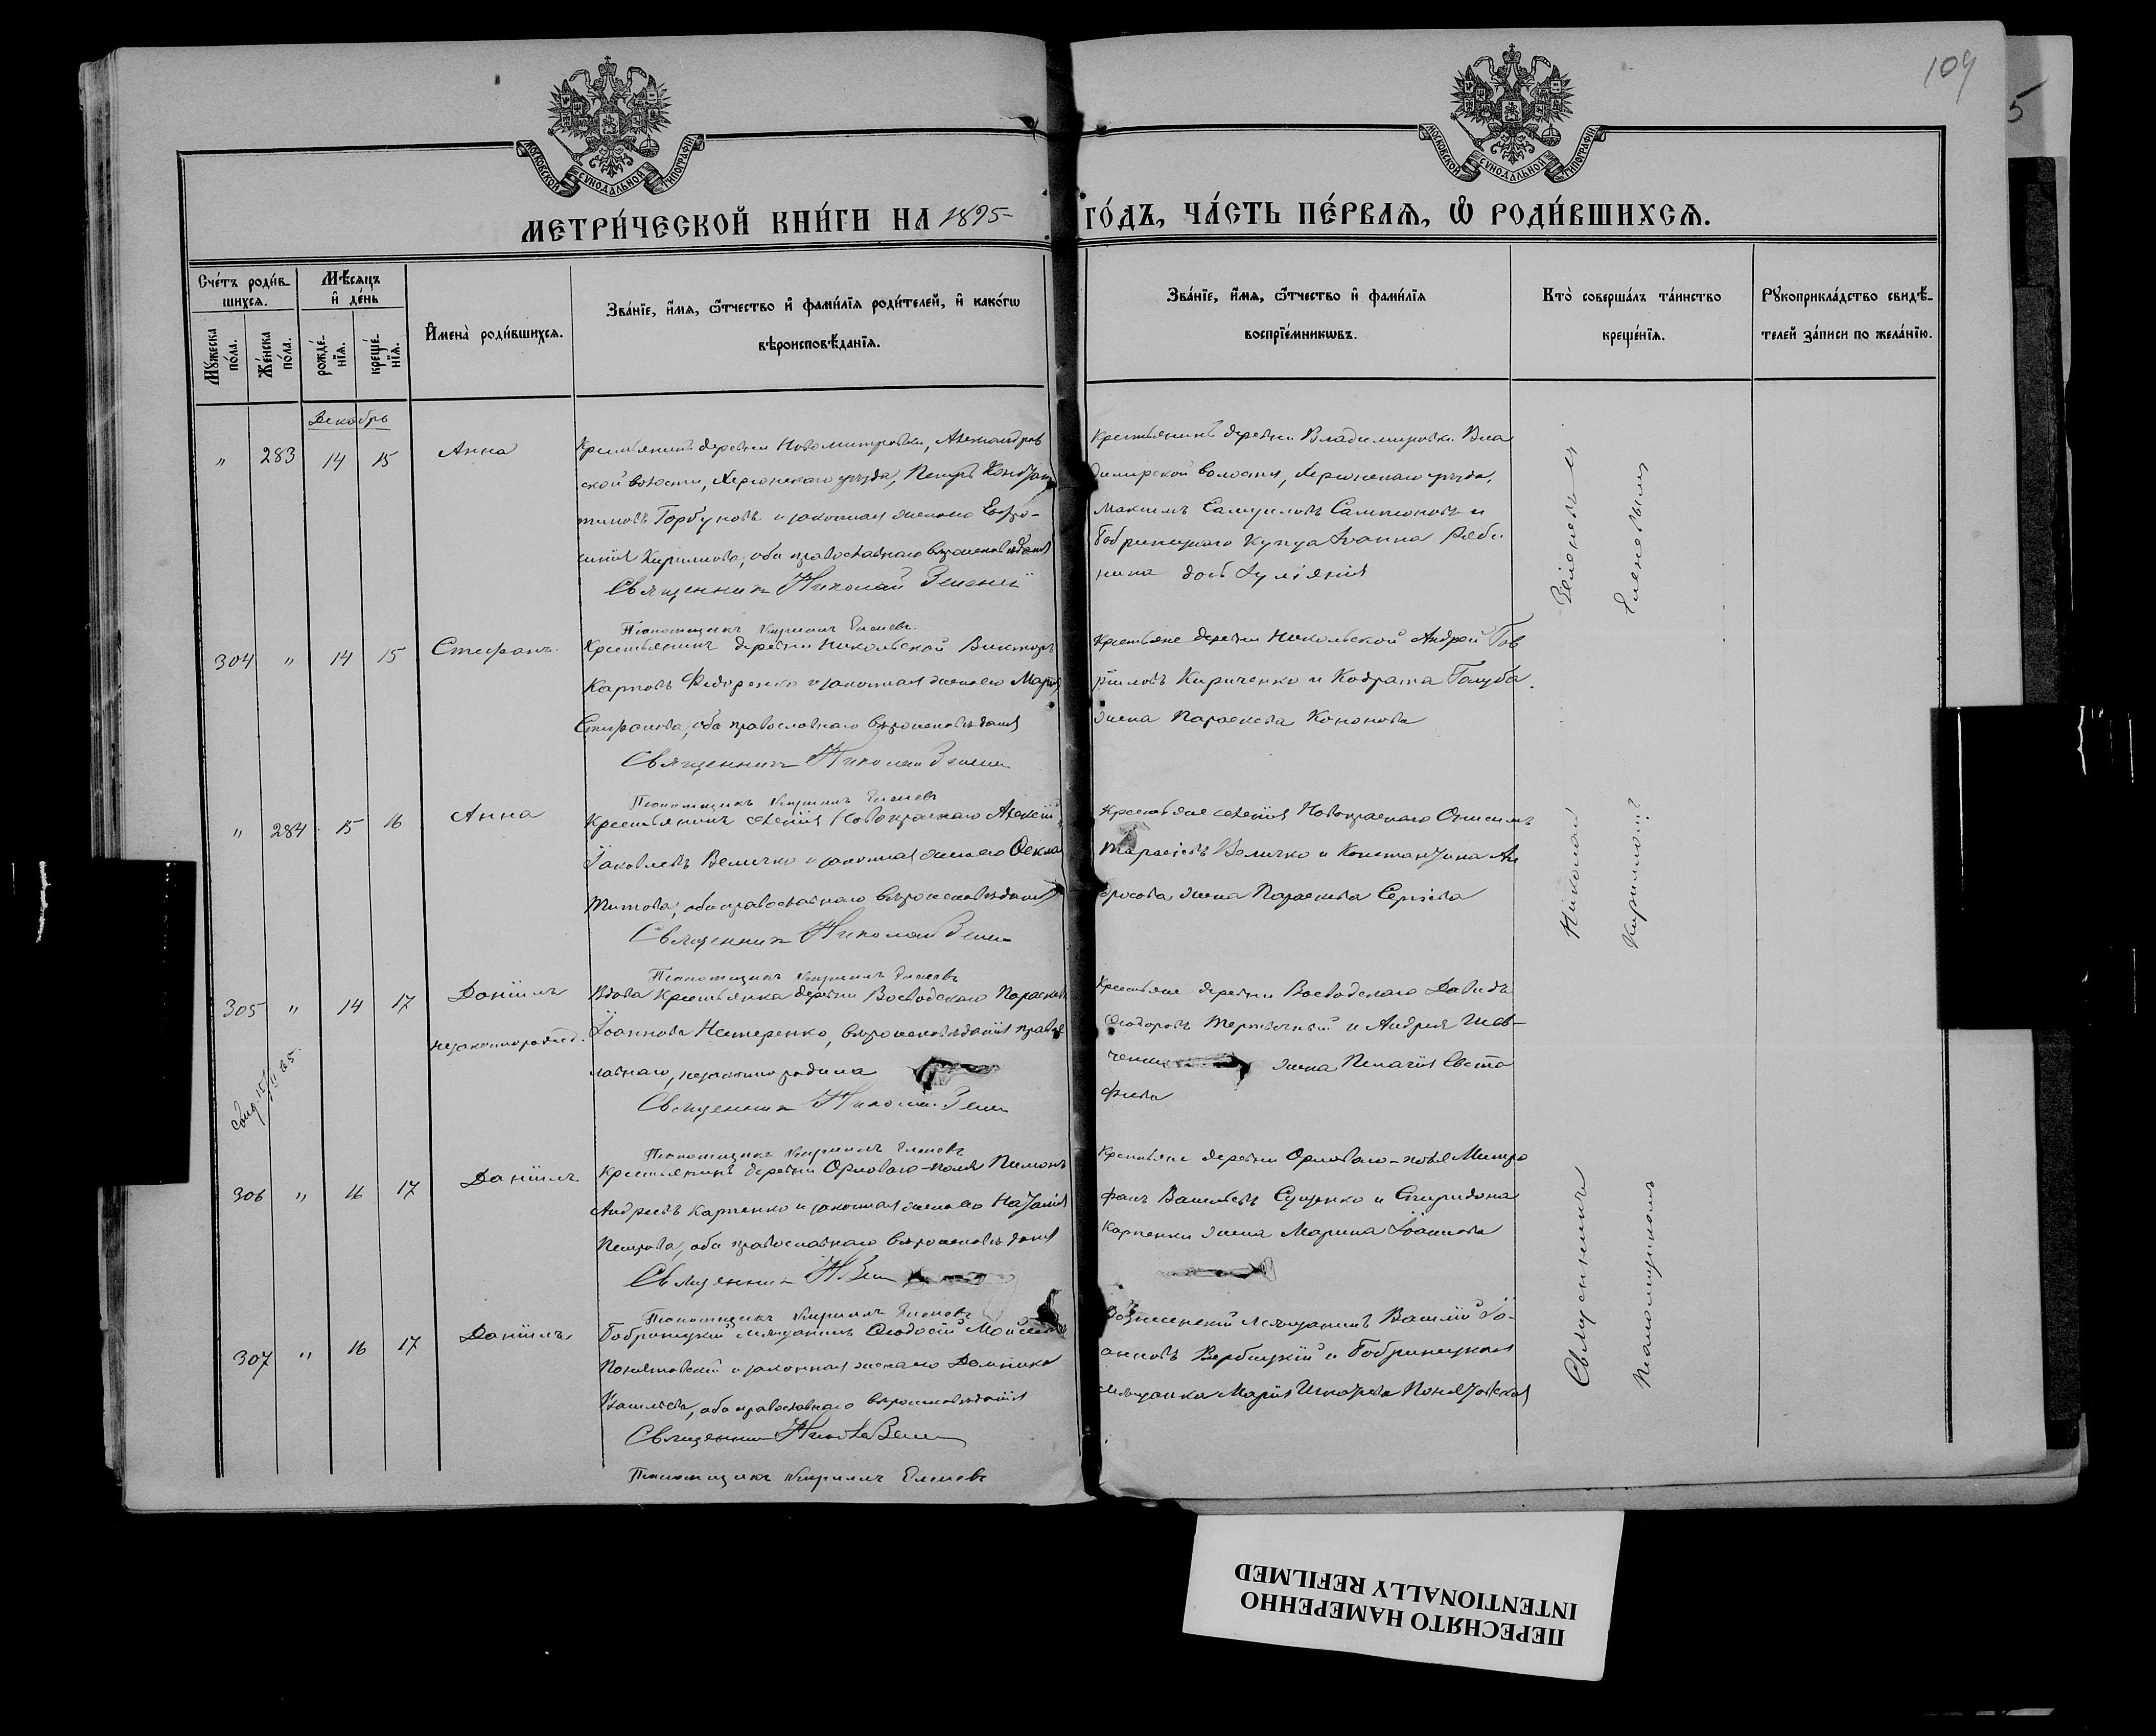 109
5
МОСКОВСКОЙ СѴНОДАЛЬНОЙ ТИПОГРАФІИ
МОСКОВСКОЙ СѴНОДАЛЬНОЙ ТИПОГРАФІИ
МЕТРИ́ЧЕСКОЙ КНИ́ГИ НА 1895 ГО́ДЪ, ЧА́СТЬ ПЕ́РВАЯ, Ѽ РОДИ́ВШИХСЯ.
Сче́тъ роди́в-
шихся.
Мѣ́сяцъ
и҆ де́нь
Мꙋ́жеска
по́ла.
Же́нска
по́ла.
рожде́-
нїя.
креще́-
нїя.
И҆мена̀ роди́вшихся.
Зва́нїе, и҆́мя, ѻ҆́тчество и҆ фами́лїя роди́телей, и҆ како́гѡ
вѣроисповѣ́данїя.
Зва́нїе, и҆́мя, ѻ҆́тчество и҆ фами́лїя
воспрїе́мникѡвъ.
Кто̀ соверша́лъ та́инство
креще́нїя.
Рꙋкоприкла́дство свидѣ́-
телей за́писи по жела́нїю.
Декабрь
" 283 14 15 Анна
Крестьянинъ деревни Новомитровки, Александров
ской волости, Херсонскаго уѣзда, Петръ
Горбуновъ и законная жена его Евфро-
синія Кирилова, оба православнаго вѣроисповѣданія
Священникъ Николай Зеленый
Псаломщикъ Кириллъ Елисеевъ
Крестьянинъ деревни Владимировки Вла
димирской волости, Херсонскаго уѣзда,
Максимъ Самуиловъ Сампсоновъ и
Бобринецкаго купца Іоанна Ряби
нина дочь Іуліанія
304 " 14 15 Стефанъ
Крестьянинъ деревни Никольской Викторъ
Карповъ Федоренко и законная жена его Марія
Стефанова, оба православнаго вѣроисповѣданія
Священникъ Николай
Псаломщикъ Кириллъ Елисеевъ
Крестьяне деревни Никольской Андрей Гав
рииловъ Кириченко и Кодрата Голуба
жена Параскева Кононова
" 284 15 16 Анна
Крестьянинъ селенія Новокраснаго Алексій
Іаковлевъ Величко и законная жена его Ѳекла
Титова, оба православнаго вѣроисповѣданія
Священникъ Николай
Псаломщикъ Кириллъ Елисеевъ
Крестьяне селенія Новокраснаго Онисимъ
Тарасіевъ Величко и Константина Ан
дросова жена Параскева Сергіева
305 " 14 17 Даніилъ
незаконнорожд.
Вдова крестьянка деревни Воеводскаго Параскева
Іоаннова Нестеренко, вѣроисповѣданія право
лавнаго, незаконно родила
Священникъ Николай
Псаломщикъ Кириллъ Елисеевъ
Крестьяне деревни Воеводскаго Давидъ
Ѳеодоровъ и Андрея Шев-
ченки жена Пелагія Евста
фіева
306 " 16 17 Даніилъ
Крестьянинъ деревни Орловаго-поля Пименъ
Андреевъ Карпенко и законная жена его Наталія
Петрова, оба православнаго вѣроисповѣданія
Священникъ Н.
Псаломщикъ Кириллъ Елисеевъ
Крестьяне деревни Орловаго-поля Митро
фанъ Васильевъ Сущенко и Спиридона
Карпенки жена Марина Іоаннова
307 " 16 17 Даніилъ
Бобринецкій мѣщанинъ Ѳеодосій Моисеевъ
Понятовскій и законная жена его Домника
Васильева, оба православнаго вѣроисповѣданія
Священникъ
Псаломщикъ Кириллъ Елисеевъ
Вознесенскій мѣщанинъ Василій Іо-
анновъ Вербицкій и Бобринецкая
мѣщанка Марія Игнатьева Понятовская
Священникъ Николай
Псаломщикомъ Кирилломъ
ПЕРЕСНЯТО НАМЕРЕННО
INTENTIONALLY REFILMED